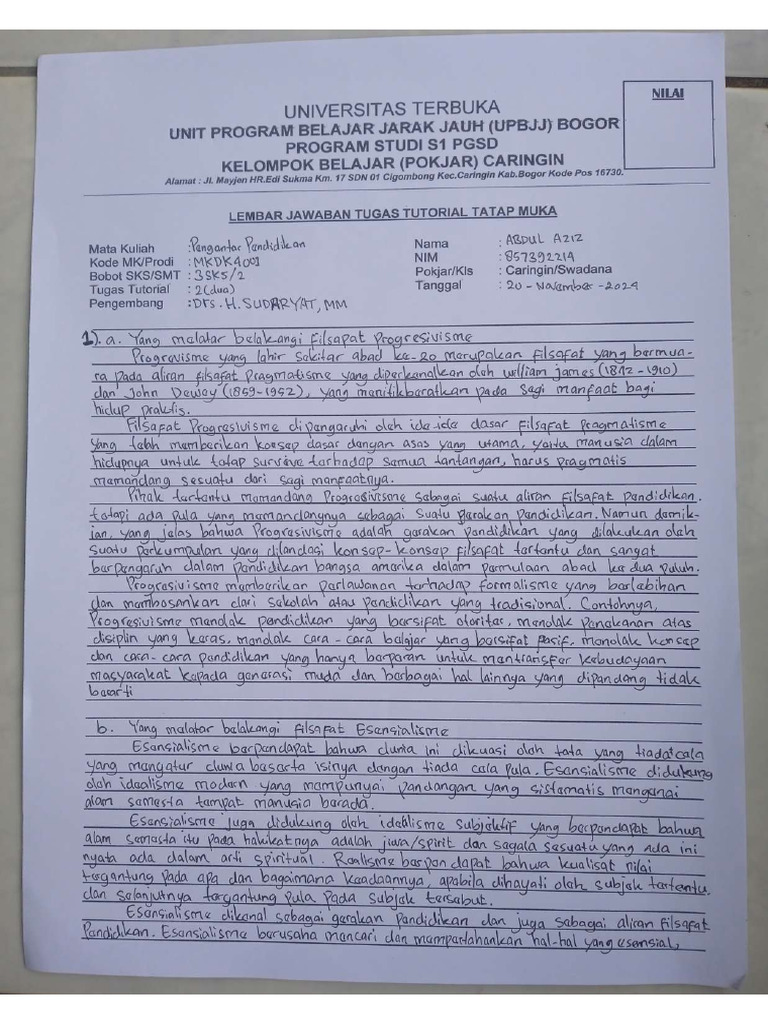 NILAI
UNIVERSITAS TERBUKA
UNIT PROGRAM BELAJAR JARAK JAUH (UPBJJ) BOGOR
PROGRAM STUDI S1 PGSD
KELOMPOK BELAJAR (POKJAR) CARINGIN
Alamat : Jl. Mayjen HR.Edi Sukma Km. 17 SDN 01 Cigombong Kec.Caringin Kab.Bogor Kode Pos 16730.
LEMBAR JAWABAN TUGAS TUTORIAL TATAP MUKA
Mata Kuliah : Pengantar Pendidikan
Kode MK/Prodi : MKDK4001
Bobot SKS/SMT : 3SKS/2
Tugas Tutorial : 2(dua)
Pengembang : Drs. H. SUDARYAT, MM
Nama : ABDUL AZIZ
NIM : 857392214
Pokjar/Kls : Caringin/Swadana
Tanggal : 20 - November - 2024
1). a. Yang melatar belakangi Filsapat Progresivisme
Progravisme yang lahir sekitar abad ke-20 merupakan filsafat yang bermua-
ra pada aliran filsafat pragmatisme yang diperkenalkan oleh william james (1842-1910)
dan John Dewey (1859-1952), yang menitikberatkan pada segi manfaat bagi
hidup praktis.
Filsafat Progresivisme dipengaruhi oleh ide-ide dasar filsafat pragmatisme
yang telah memberikan konsep dasar dengan asas yang utama, yaitu manusia dalam
hidupnya untuk tetap survive terhadap semua tantangan, harus pragmatis
memandang sesuatu dari segi manfaatnya.
Pihak tertentu memandang Progresivisme sebagai suatu aliran filsafat pendidikan.
tetapi ada pula yang memandangnya sebagai suatu gerakan pendidikan. Namun demik-
ian, yang jelas bahwa Progresivisme adalah gerakan pendidikan yang dilakukan oleh
suatu perkumpulan yang dilandasi konsep-konsep filsafat tertentu dan sangat
berpengaruh dalam pendidikan bangsa amerika dalam permulaan abad ke dua puluh.
Progresivisme memberikan perlawanan terhadap formalisme yang berlebihan
dan membosankan dari sekolah atau pendidikan yang tradisional. Contohnya,
Progresivisme menolak pendidikan yang bersifat otoritas, menolak penekanan atas
disiplin yang keras, menolak cara-cara belajar yang bersifat pasif, menolak konsep
dan cara-cara pendidikan yang hanya berperan untuk mentransfer kebudayaan
masyarakat kepada generasi muda dan berbagai hal lainnya yang dipandang tidak
berarti
b. Yang melatar belakangi filsafat Esensialisme
Esensialisme berpendapat bahwa dunia ini dikuasi oleh tata yang tiada cela
yang mengatur dunia beserta isinya dengan tiada cela pula. Esensialisme didukung
oleh idealisme modern yang mempunyai pandangan yang sistematis mengenai
alam semesta tempat manusia berada.
Esensialisme juga didukung oleh idealisme subjektif yang berpendapat bahwa
alam semesta itu pada hakikatnya adalah jiwa/spirit dan segala sesuatu yang ada ini
nyata ada dalam arti spiritual. Realisme berpendapat bahwa kualisat nilai
tergantung pada apa dan bagaimana keadaannya, apabila dihayati oleh subjek tertentu.
dan selanjutnya tergantung pula pada subjek tersebut.
Esensialisme dikenal sebagai gerakan pendidikan dan juga sebagai aliran filsafat
Pendidikan. Esensialisme berusaha mencari dan mempertahankan hal-hal yang esensial,